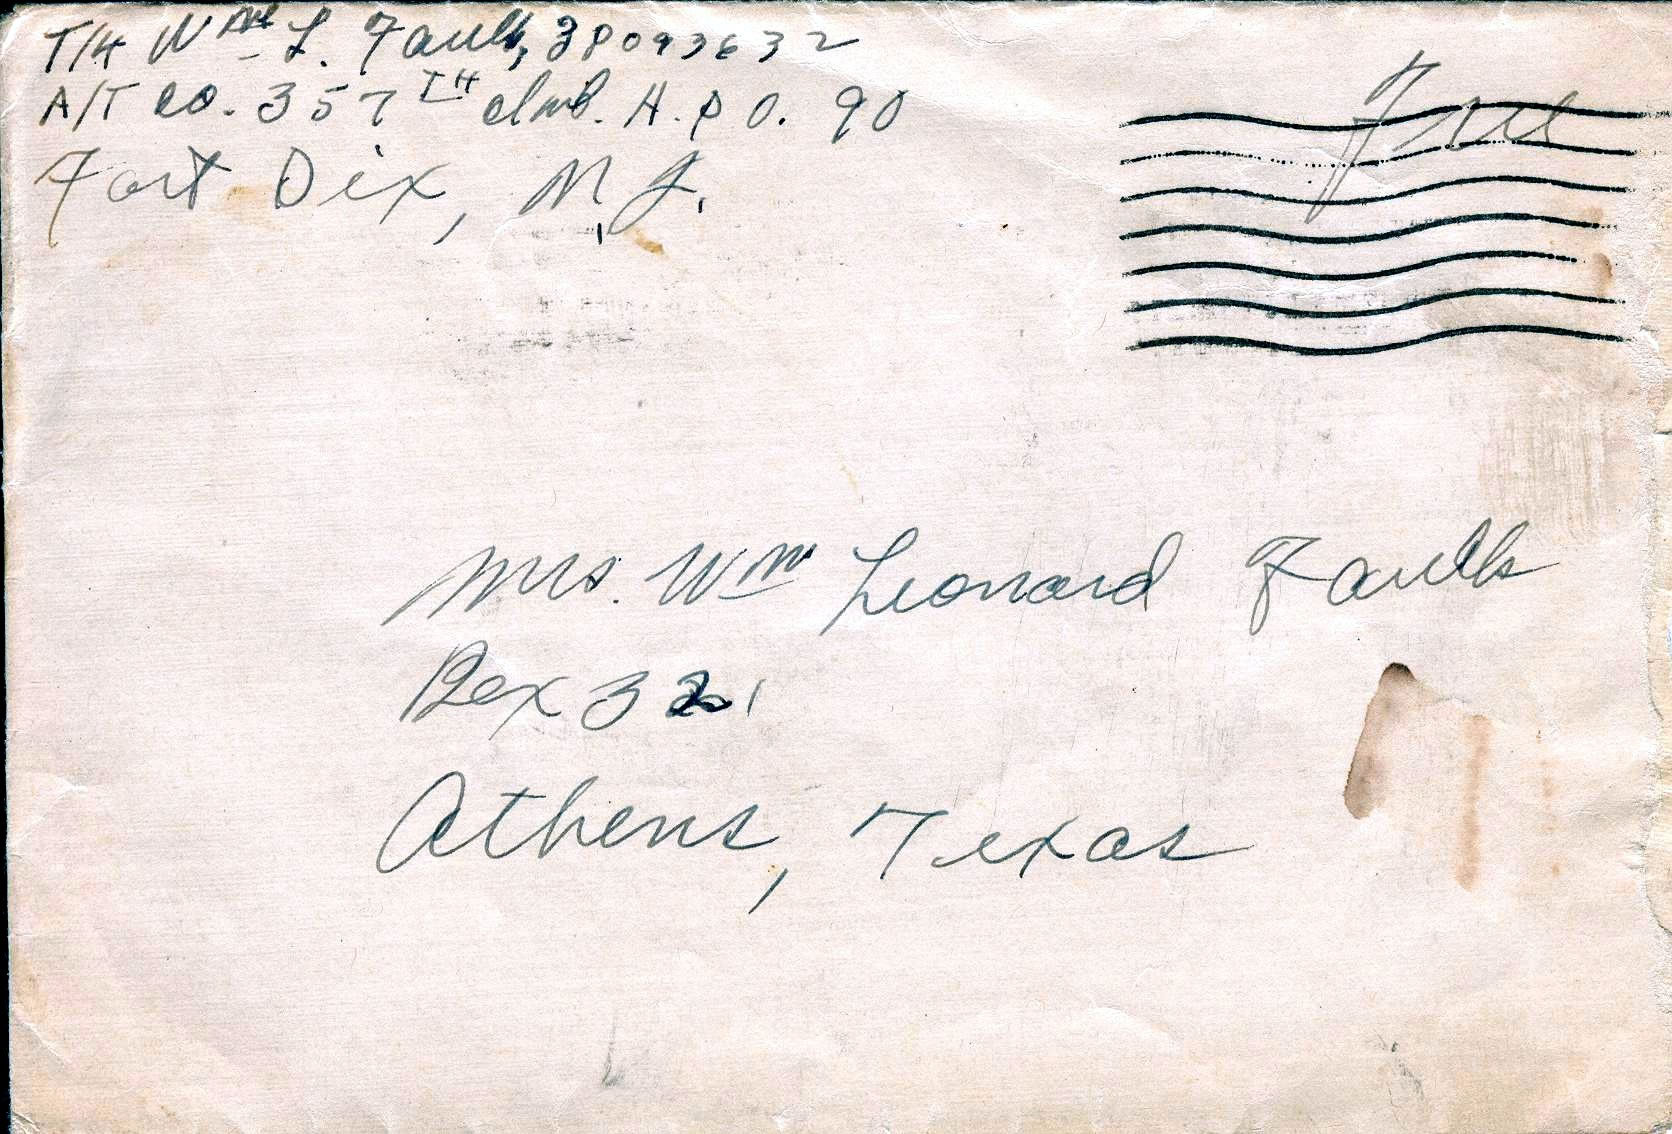 T/4 Wm L. Faulk, 38093632
A/T Co. 357TH Inf. A.P.O. 90
Fort Dix, N.J.
Free
Mrs. Wm Leonard Faulk
Box 321
Athens, Texas